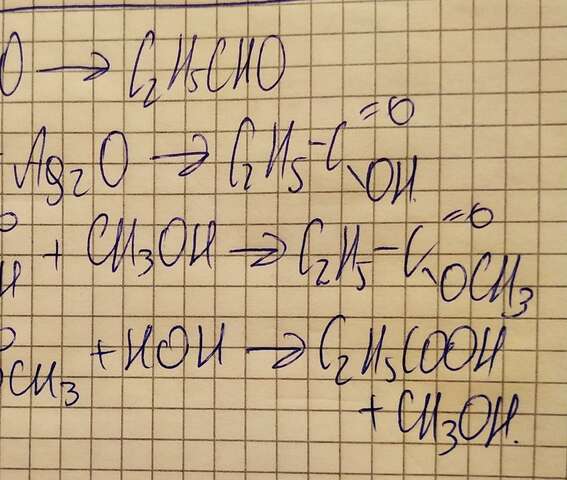 O → C₂H₅CHO
Ag₂O → C₂H₅-C=O\OH
+ CH₃OH → C₂H₅-C=O\OCH₃
OCH₃ + HOH → C₂H₅COOH
+ CH₃OH.